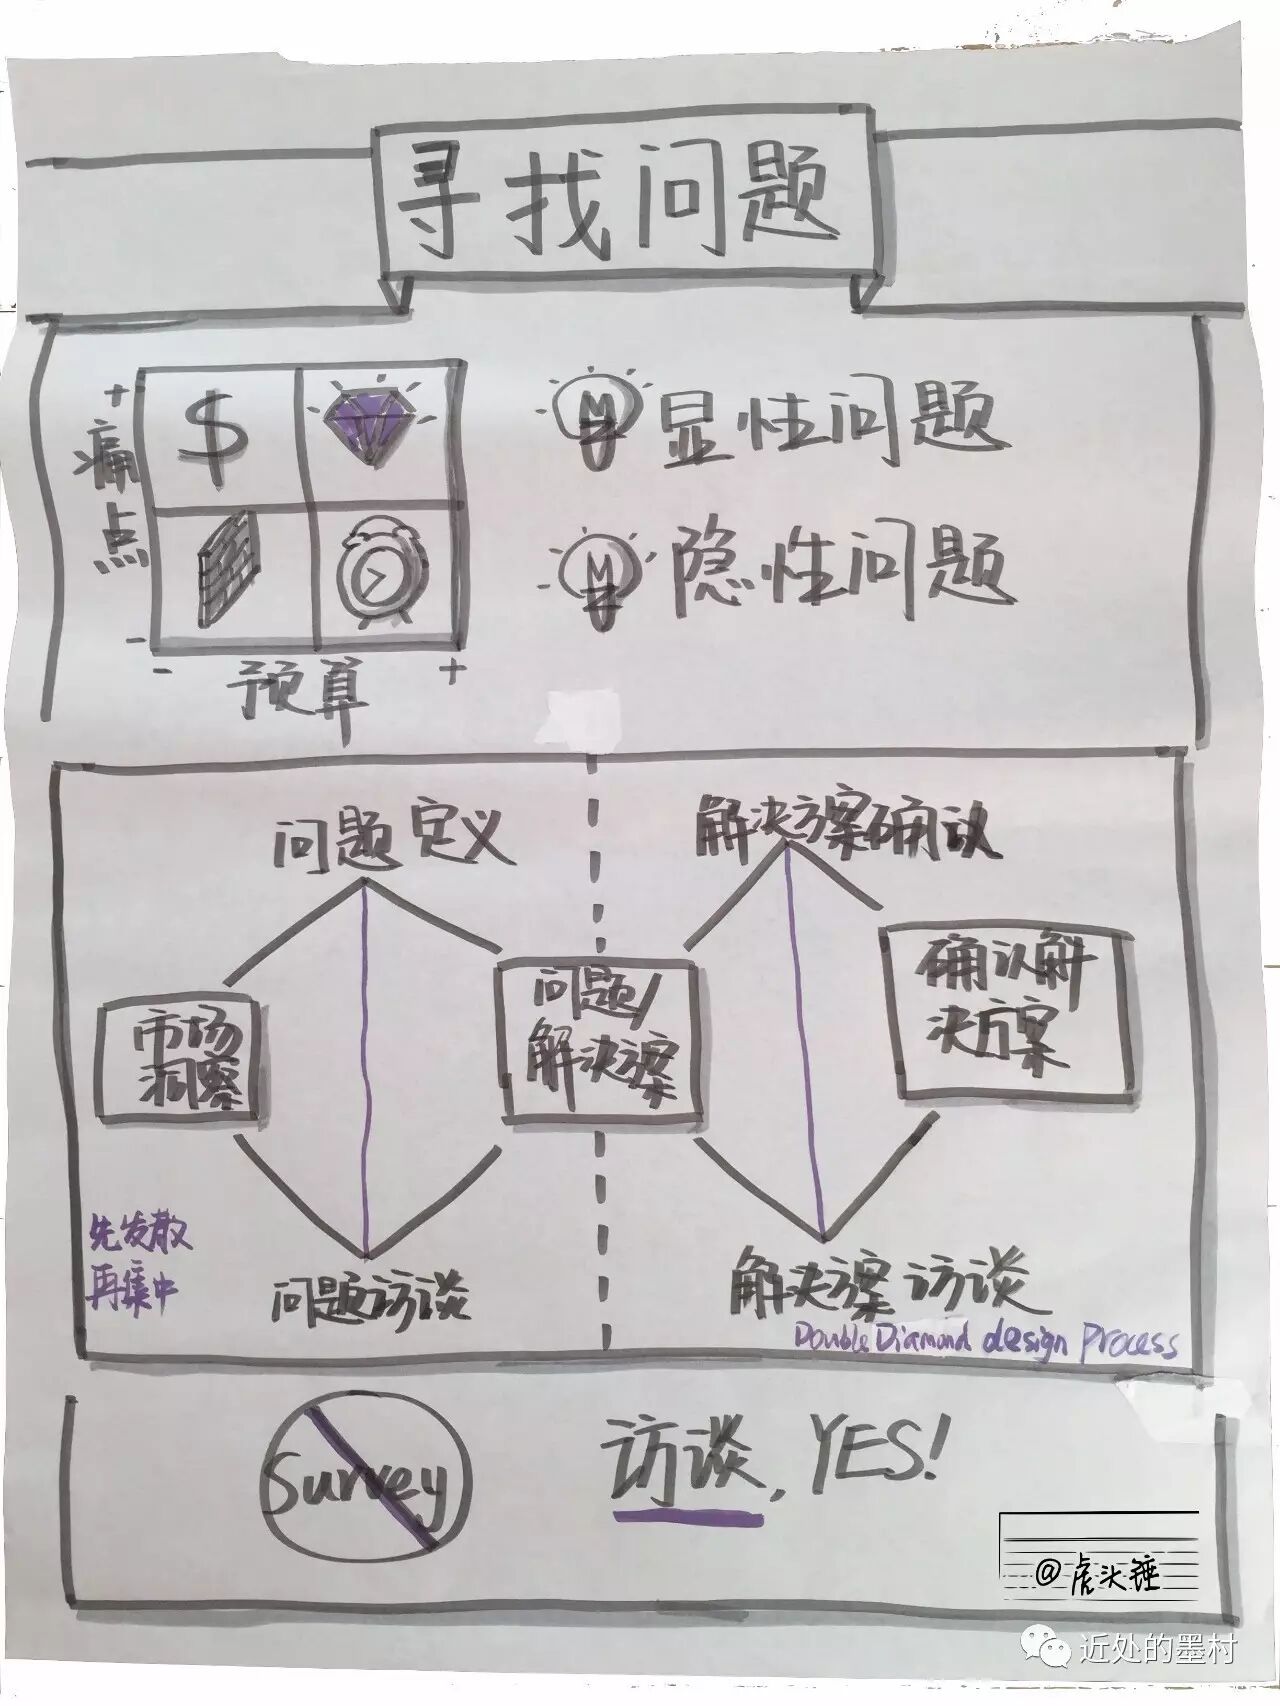 寻找问题
+
痛点
-
$
- 预算 +
显性问题
隐性问题
问题定义
解决方案确认
市场
洞察
问题/
解决方案
确认解
决方案
先发散
再集中
问题访谈
解决方案访谈
Double Diamond design Process
Survey
访谈, YES!
@虎头锤
近处的墨村